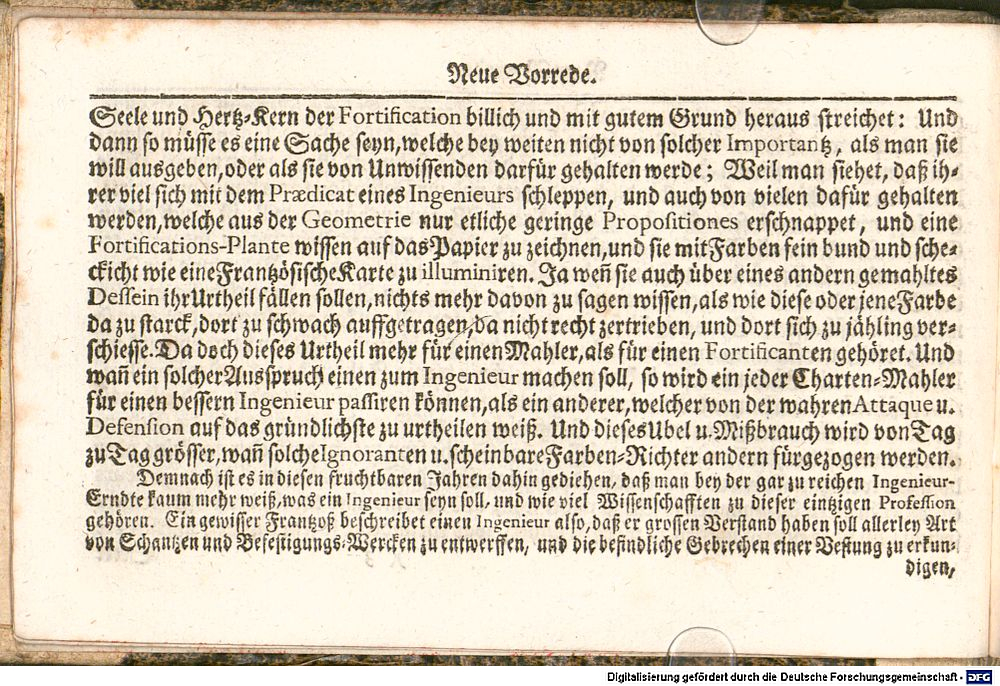 Neue Vorrede.
Seele und Hertz-Kern der Fortification billich und mit gutem Grund heraus streichet: Und
dann so müsse es eine Sache seyn, welche bey weiten nicht von solcher Importantz, als man sie
will ausgeben, oder als sie von Unwissenden darfür gehalten werde; Weil man siehet, daß ih-
rer viel sich mit dem Prædicat eines Ingenieurs schleppen, und auch von vielen dafür gehalten
werden, welche aus der Geometrie nur etliche geringe Propositiones erschnappet, und eine
Fortifications-Plante wissen auf das Papier zu zeichnen, und sie mit Farben fein bund und sche-
ckicht wie eine Frantzösische Karte zu illuminiren. Ja weñ sie auch über eines andern gemahltes
Dessein ihr Urtheil fällen sollen, nichts mehr davon zu sagen wissen, als wie diese oder jene Farbe
da zu starck, dort zu schwach auffgetragen, da nicht recht zertrieben, und dort sich zu jähling ver-
schiesse. Da doch dieses Urtheil mehr für einen Mahler, als für einen Fortificanten gehöret. Und
wañ ein solcher Ausspruch einen zum Ingenieur machen soll, so wird ein jeder Charten-Mahler
für einen bessern Ingenieur passiren können, als ein anderer, welcher von der wahren Attaque u.
Defension auf das gründlichste zu urtheilen weiß. Und dieses Ubel u. Mißbrauch wird von Tag
zu Tag grösser, wañ solche Ignoranten u. scheinbare Farben-Richter andern fürgezogen werden.
Demnach ist es in diesen fruchtbaren Jahren dahin gediehen, daß man bey der gar zu reichen Ingenieur-
Erndte kaum mehr weiß, was ein Ingenieur seyn soll, und wie viel Wissenschafften zu dieser eintzigen Profession
gehören. Ein gewisser Frantzoß beschreibet einen Ingenieur also, daß er grossen Verstand haben soll allerley Art
von Schantzen und Befestigungs-Wercken zu entwerffen, und die befindliche Gebrechen einer Vestung zu erkun-
digen,
Digitalisierung gefördert durch die Deutsche Forschungsgemeinschaft - DFG